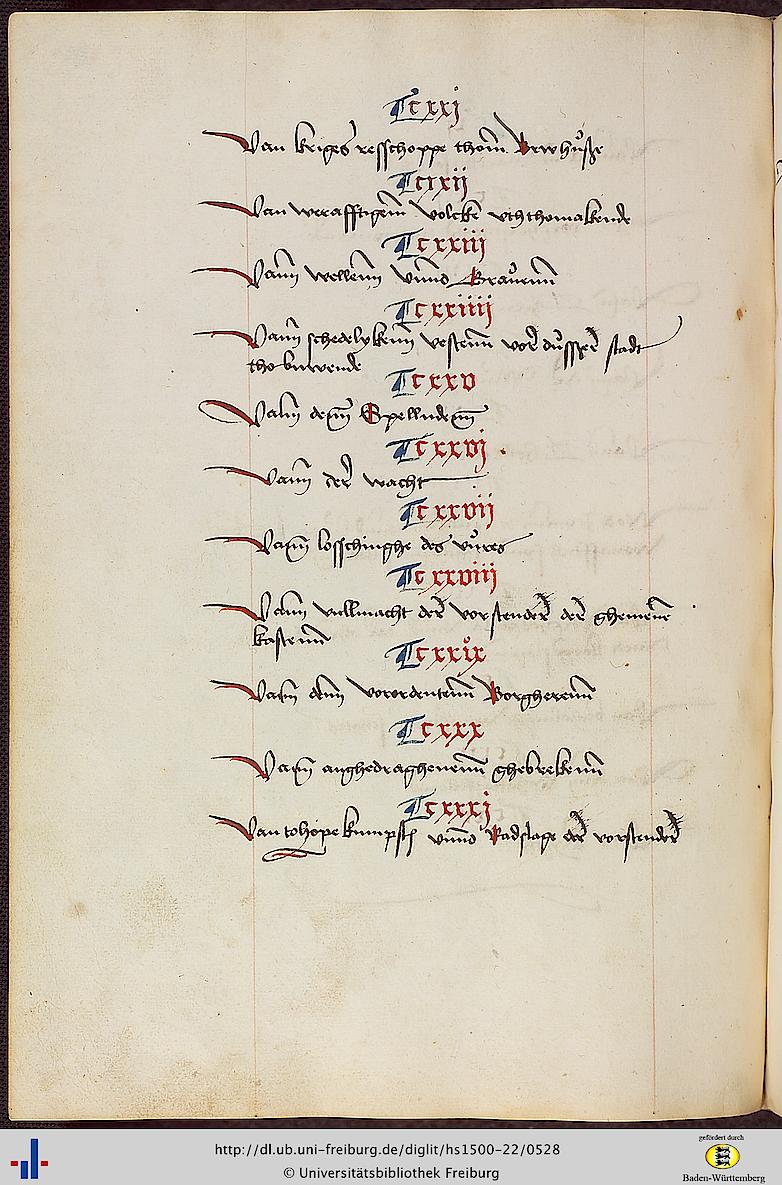 Cxxj
Van kriges resschoppe thom Bruwhuße
Cxxij
Van werafftigem volcke vththomakende
Cxxiij
Vann wellenn vnnd Brauenn
Cxxiiij
Vann schedelykenn vestenn vor dusser stadt
tho buwende
Cxxv
Vann demm Spelludenn
Cxxvj
Vann der wacht
Cxxvij
Vann losschinghe des vures
Cxxviij
Vann vullmacht der vorstender der ghemene
kastenn
Cxxix
Vann denn vorordentenn Borgherenn
Cxxx
Vann anghedraghenenn ghebrekenn
Cxxxj
Van tohope kumpst vnnd Radslage der vorstender
http://dl.ub.uni-freiburg.de/diglit/hs1500-22/0528
© Universitätsbibliothek Freiburg
gefördert durch
Baden-Württemberg